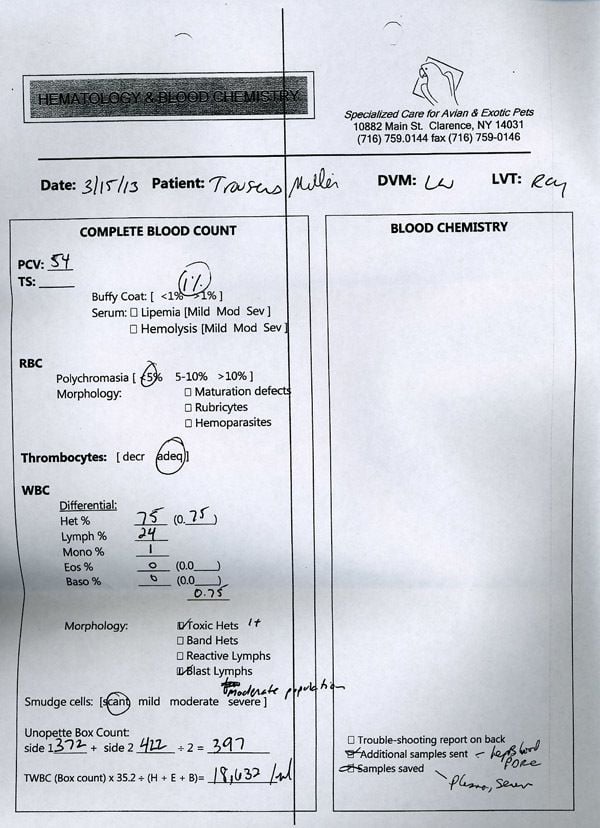 HEMATOLOGY & BLOOD CHEMISTRY
Specialized Care for Avian & Exotic Pets
10882 Main St. Clarence, NY 14031
(716) 759.0144 fax (716) 759-0146
Date: 3/15/13 Patient: Trousers Miller DVM: LW LVT: Ray
COMPLETE BLOOD COUNT
PCV: 54
TS:
1%
Buffy Coat: [ <1% >1% ]
Serum: □ Lipemia [Mild Mod Sev ]
□ Hemolysis [Mild Mod Sev ]
RBC
Polychromasia [ <5% 5-10% >10% ]
Morphology: □ Maturation defects
□ Rubricytes
□ Hemoparasites
Thrombocytes: [ decr adeq ]
WBC
Differential:
Het % 75 (0.75)
Lymph % 24
Mono % 1
Eos % 0 (0.0___)
Baso % 0 (0.0___)
0.75
Morphology: ☑ Toxic Hets 1+
□ Band Hets
□ Reactive Lymphs
☑ Blast Lymphs
moderate population
Smudge cells: [scant mild moderate severe ]
Unopette Box Count:
side 1 372 + side 2 422 ÷ 2 = 397
TWBC (Box count) x 35.2 ÷ (H + E + B)= 18,632 /ul
BLOOD CHEMISTRY
□ Trouble-shooting report on back
☑ Additional samples sent - Lead blood
☑ Samples saved
Plasma, Serum